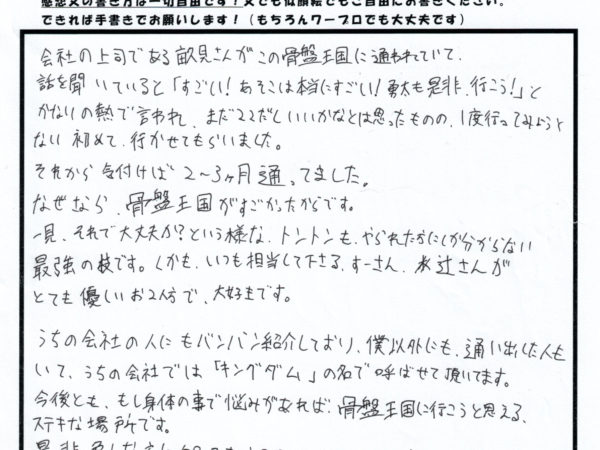 感想文の書き方は一切自由です！文でも似顔絵でもご自由にお書きください。
できれば手書きでお願いします！（もちろんワープロでも大丈夫です）
会社の上司である畝見さんがこの骨盤王国に通われていて、
話を聞いていると「すごい！あそこは本当にすごい！勇太も是非、行こう！」と
かないの熱で言われ、まだ22だしいいかなとは思ったものの、1度行ってみようと
ない 初めて、行かせてもらいました。
それから気付けば2〜3ヶ月通ってました。
なぜなら、骨盤王国がすごかったからです。
一見、それで大丈夫か？という様な、トントンも、やられた方にしか分からない
最強の技です。しかも、いつも担当して下さる、すーさん、水辻さんが
とても優しいお2人方で、大好きです。
うちの会社の人にもバンバン紹介しており、僕以外にも、通い出した人も
いて、うちの会社では「キングダム」の名で呼ばせて頂いてます。
今後とも、もし身体の事で悩みがあれば、骨盤王国に行こうと思える、
ステキな場所です。
是非